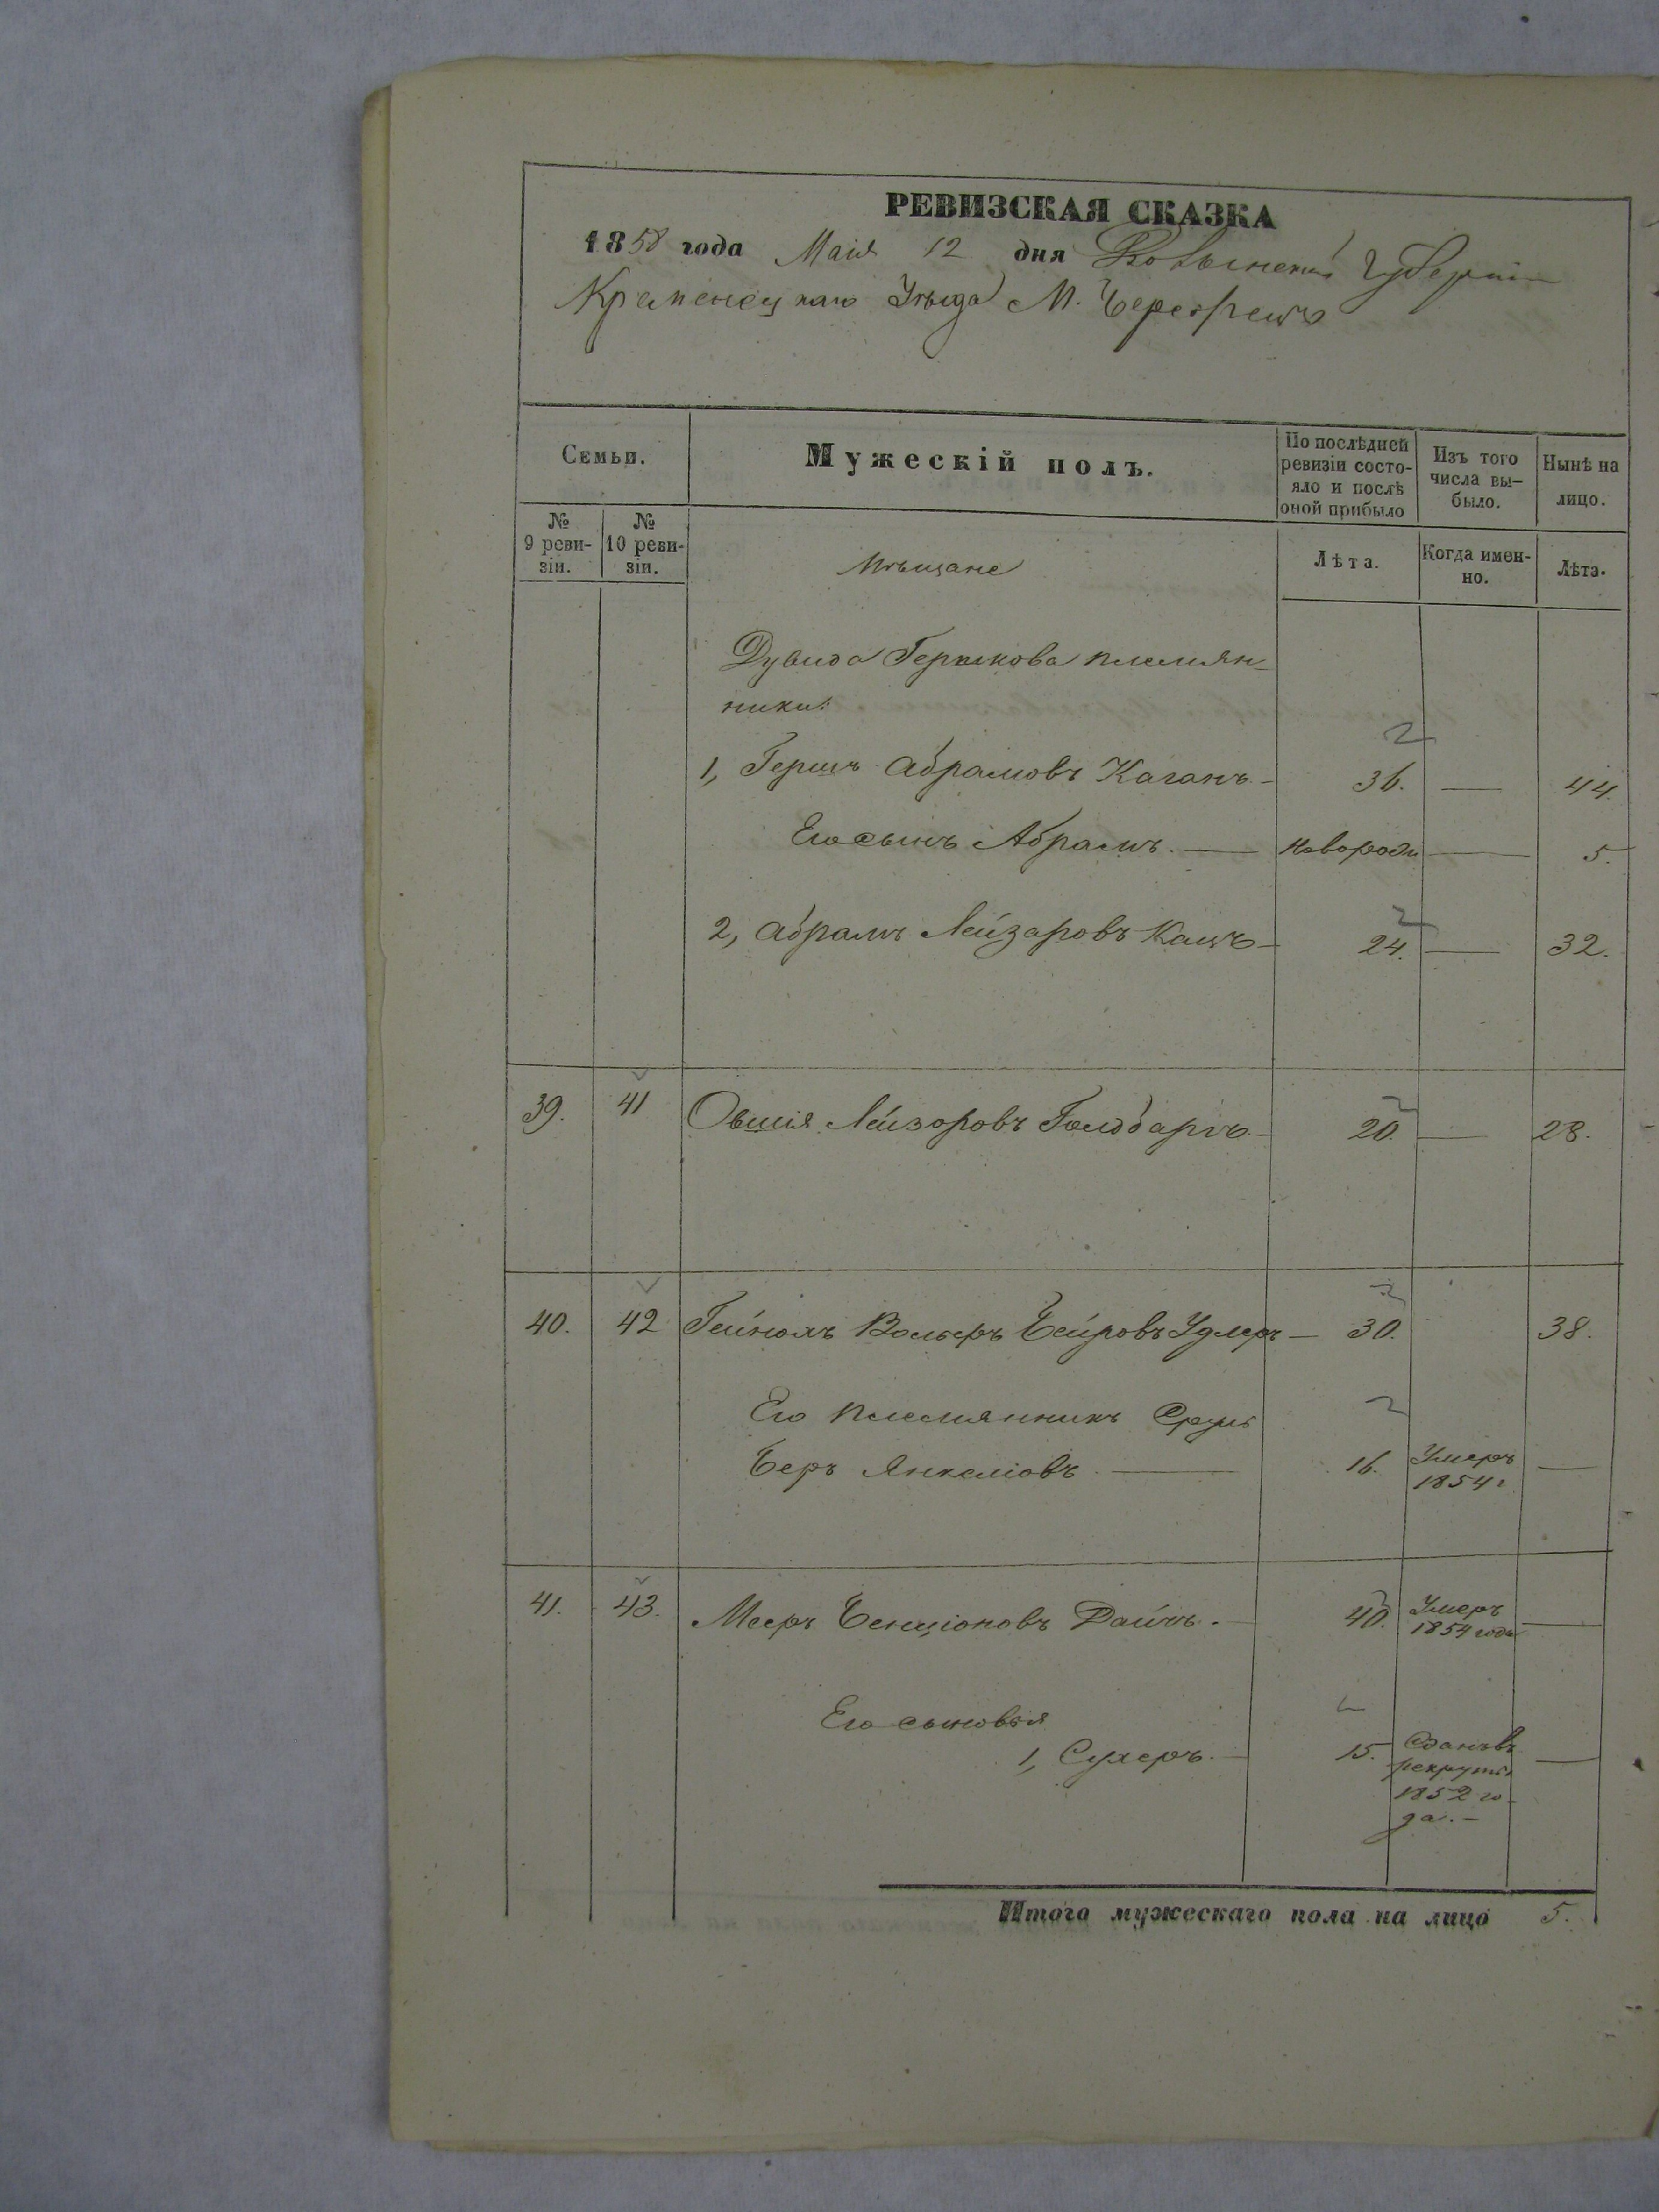 РЕВИЗСКАЯ СКАЗКА
1858 года Маія 12 дня Волынской Губерніи
Кременецкаго Уѣзда М. Берестечь
Семьи.
Мужескій полъ.
По послѣдней ревизіи состо-
яло и послѣ оной прибыло
Изъ того числа вы-
было.
Нынѣ на лицо.
№ 9 реви-
зіи.
№ 10 реви-
зіи.
Мѣщане
Лѣта.
Когда имен-
но.
Лѣта.
Дувида Гершкова племян-
ники:
1, Гершъ Абрамовъ Каганъ - 36. — 44.
Его сынъ Абрамъ. — новорожд — 5.
2, Абрамъ Лейзаровъ Кацъ - 24. — 32.
39. 41 Овшія Лейзоровъ Голдбаргъ - 20. — 28.
40. 42 Вольфъ Беировъ Удлеръ - 30. 38.
Его племянникъ Сруль
Беръ Янкеліовъ — 16. Умеръ —
1854 г
41. 43. Мееръ Бенціоновъ Райчъ. - 40. Умеръ —
1854 года
Его сыновья
1, Сухеръ. - 15. Сданъ въ —
рекруты
1852 го-
да. -
Итого мужескаго пола на лицо 5.